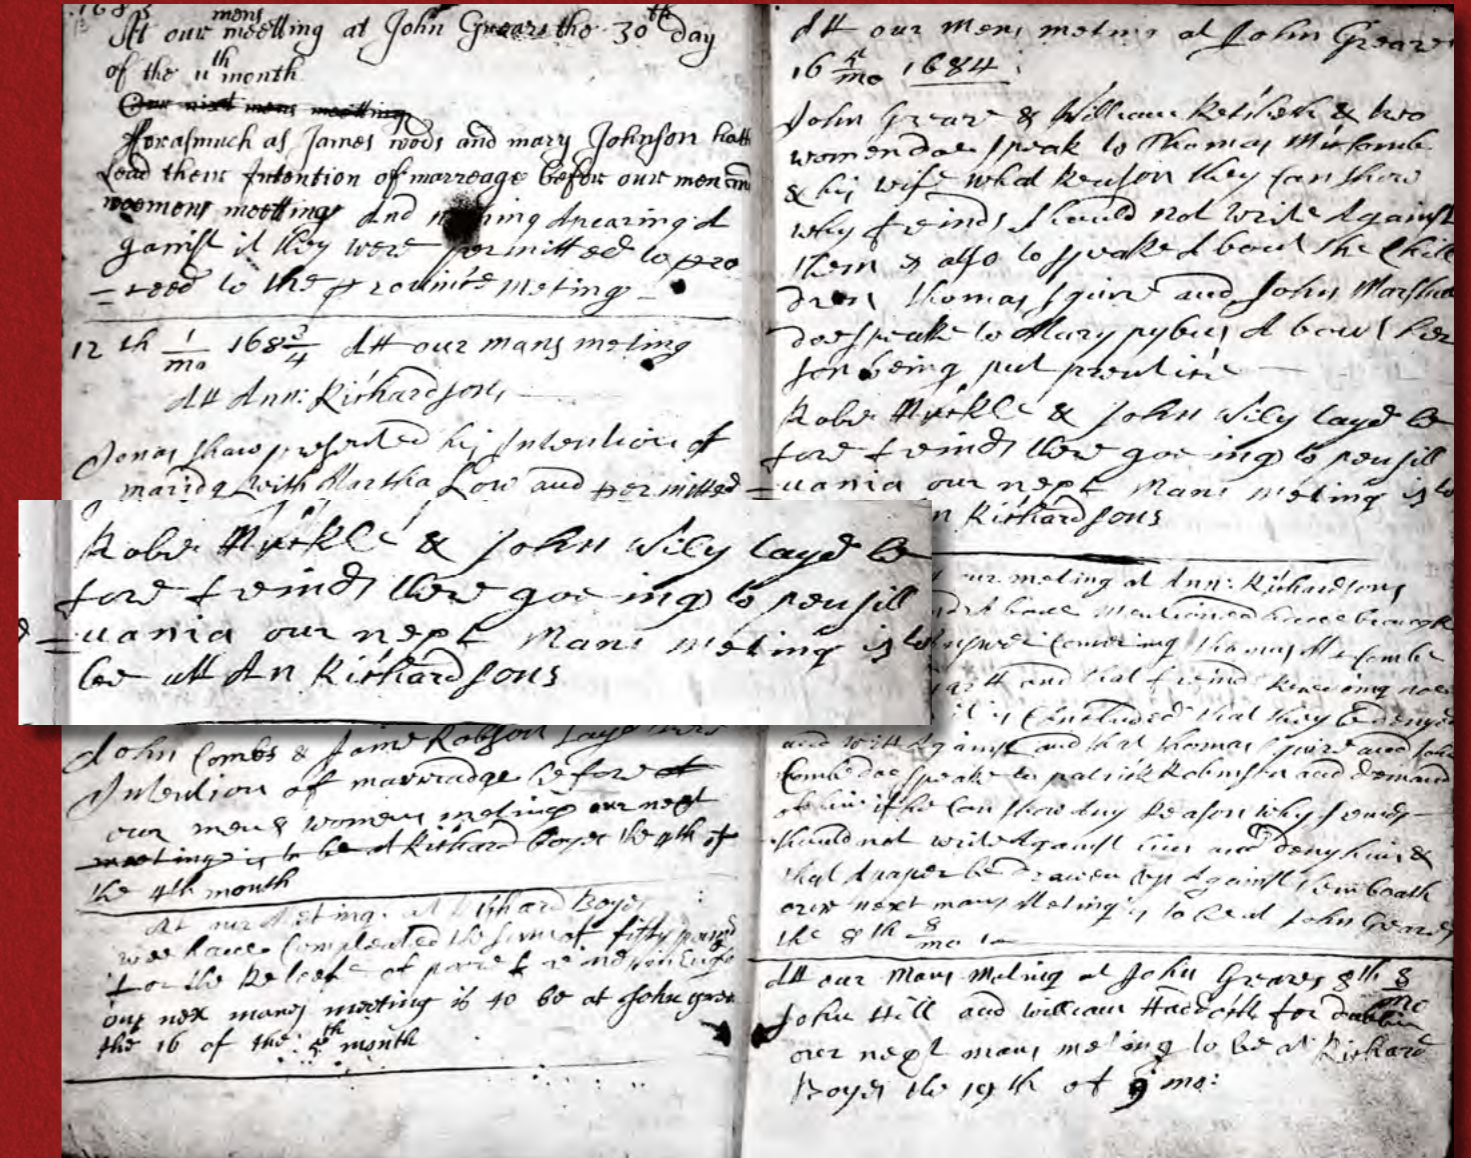 1683
At our mens meetting at John Grears the 30th day
of the 11th month
Our next mens meetting
fforasmuch as James woods and mary Johnson hath
Lead their Intention of marreage before our men and
woomens meettings And nothing Apearing A
gainst it they were permitted to pro
=ceed to the province Meting
12th 1/mo 1683/4 Att our mans meting
Att Ann: Richardsons
Jonas shaw presented his Intention of
maridg with Martha Low and permitted
John Combs & Jaine Robson Layd their
Intention of marriadge before
our men & womens meting our next
meeting is to be at Richard Boyes the 9th of
the 4th month
At our Meting at Richard Boyes
wee have Compleated the sume of fifty pound
for the Releefe of poore freinds in Engl
our nex manes meeting is to be at John Grea
the 16 of the 5th month
Att our Mens meting at John Greares
16 5/mo 1684
John Greare & William & two
women doe speak to Thomas
& his wife what Reason they Can show
why freinds should not write Against
them & also to speake About the Chill
dren thomas squire and John Marshal
doe speake to Mary pybus About her
son being put prentice
Robt Muckle & John Wily layd be
fore freinds there goe ing to pensill
=uania our next Mans meting is to
n Richardsons
Robt Muckle & John Wily layd be
fore freinds there goe ing to pensill
=uania our next Mans meting is to
bee att An Richardsons
our meting at Ann: Richardsons
Above Mentioned have brought
Answer Conserning Thomas
and that freinds
it is Concluded that they be denyed
and writt Against and that thomas squire and John
Combe doe speake to patrick Robinson and demand
of him if he Can show Any Reason why freinds
should not write Against him and deny him &
that A paper be drawen up Against them boath
over next mans Meting is to be at John Greares
the 8th 8/mo
Att our Mans Meting at John Greares 8th 8/mo
John Hill and william for dublin
over next mans meting to be at Richard
Boyes the 19th of 9 mo: